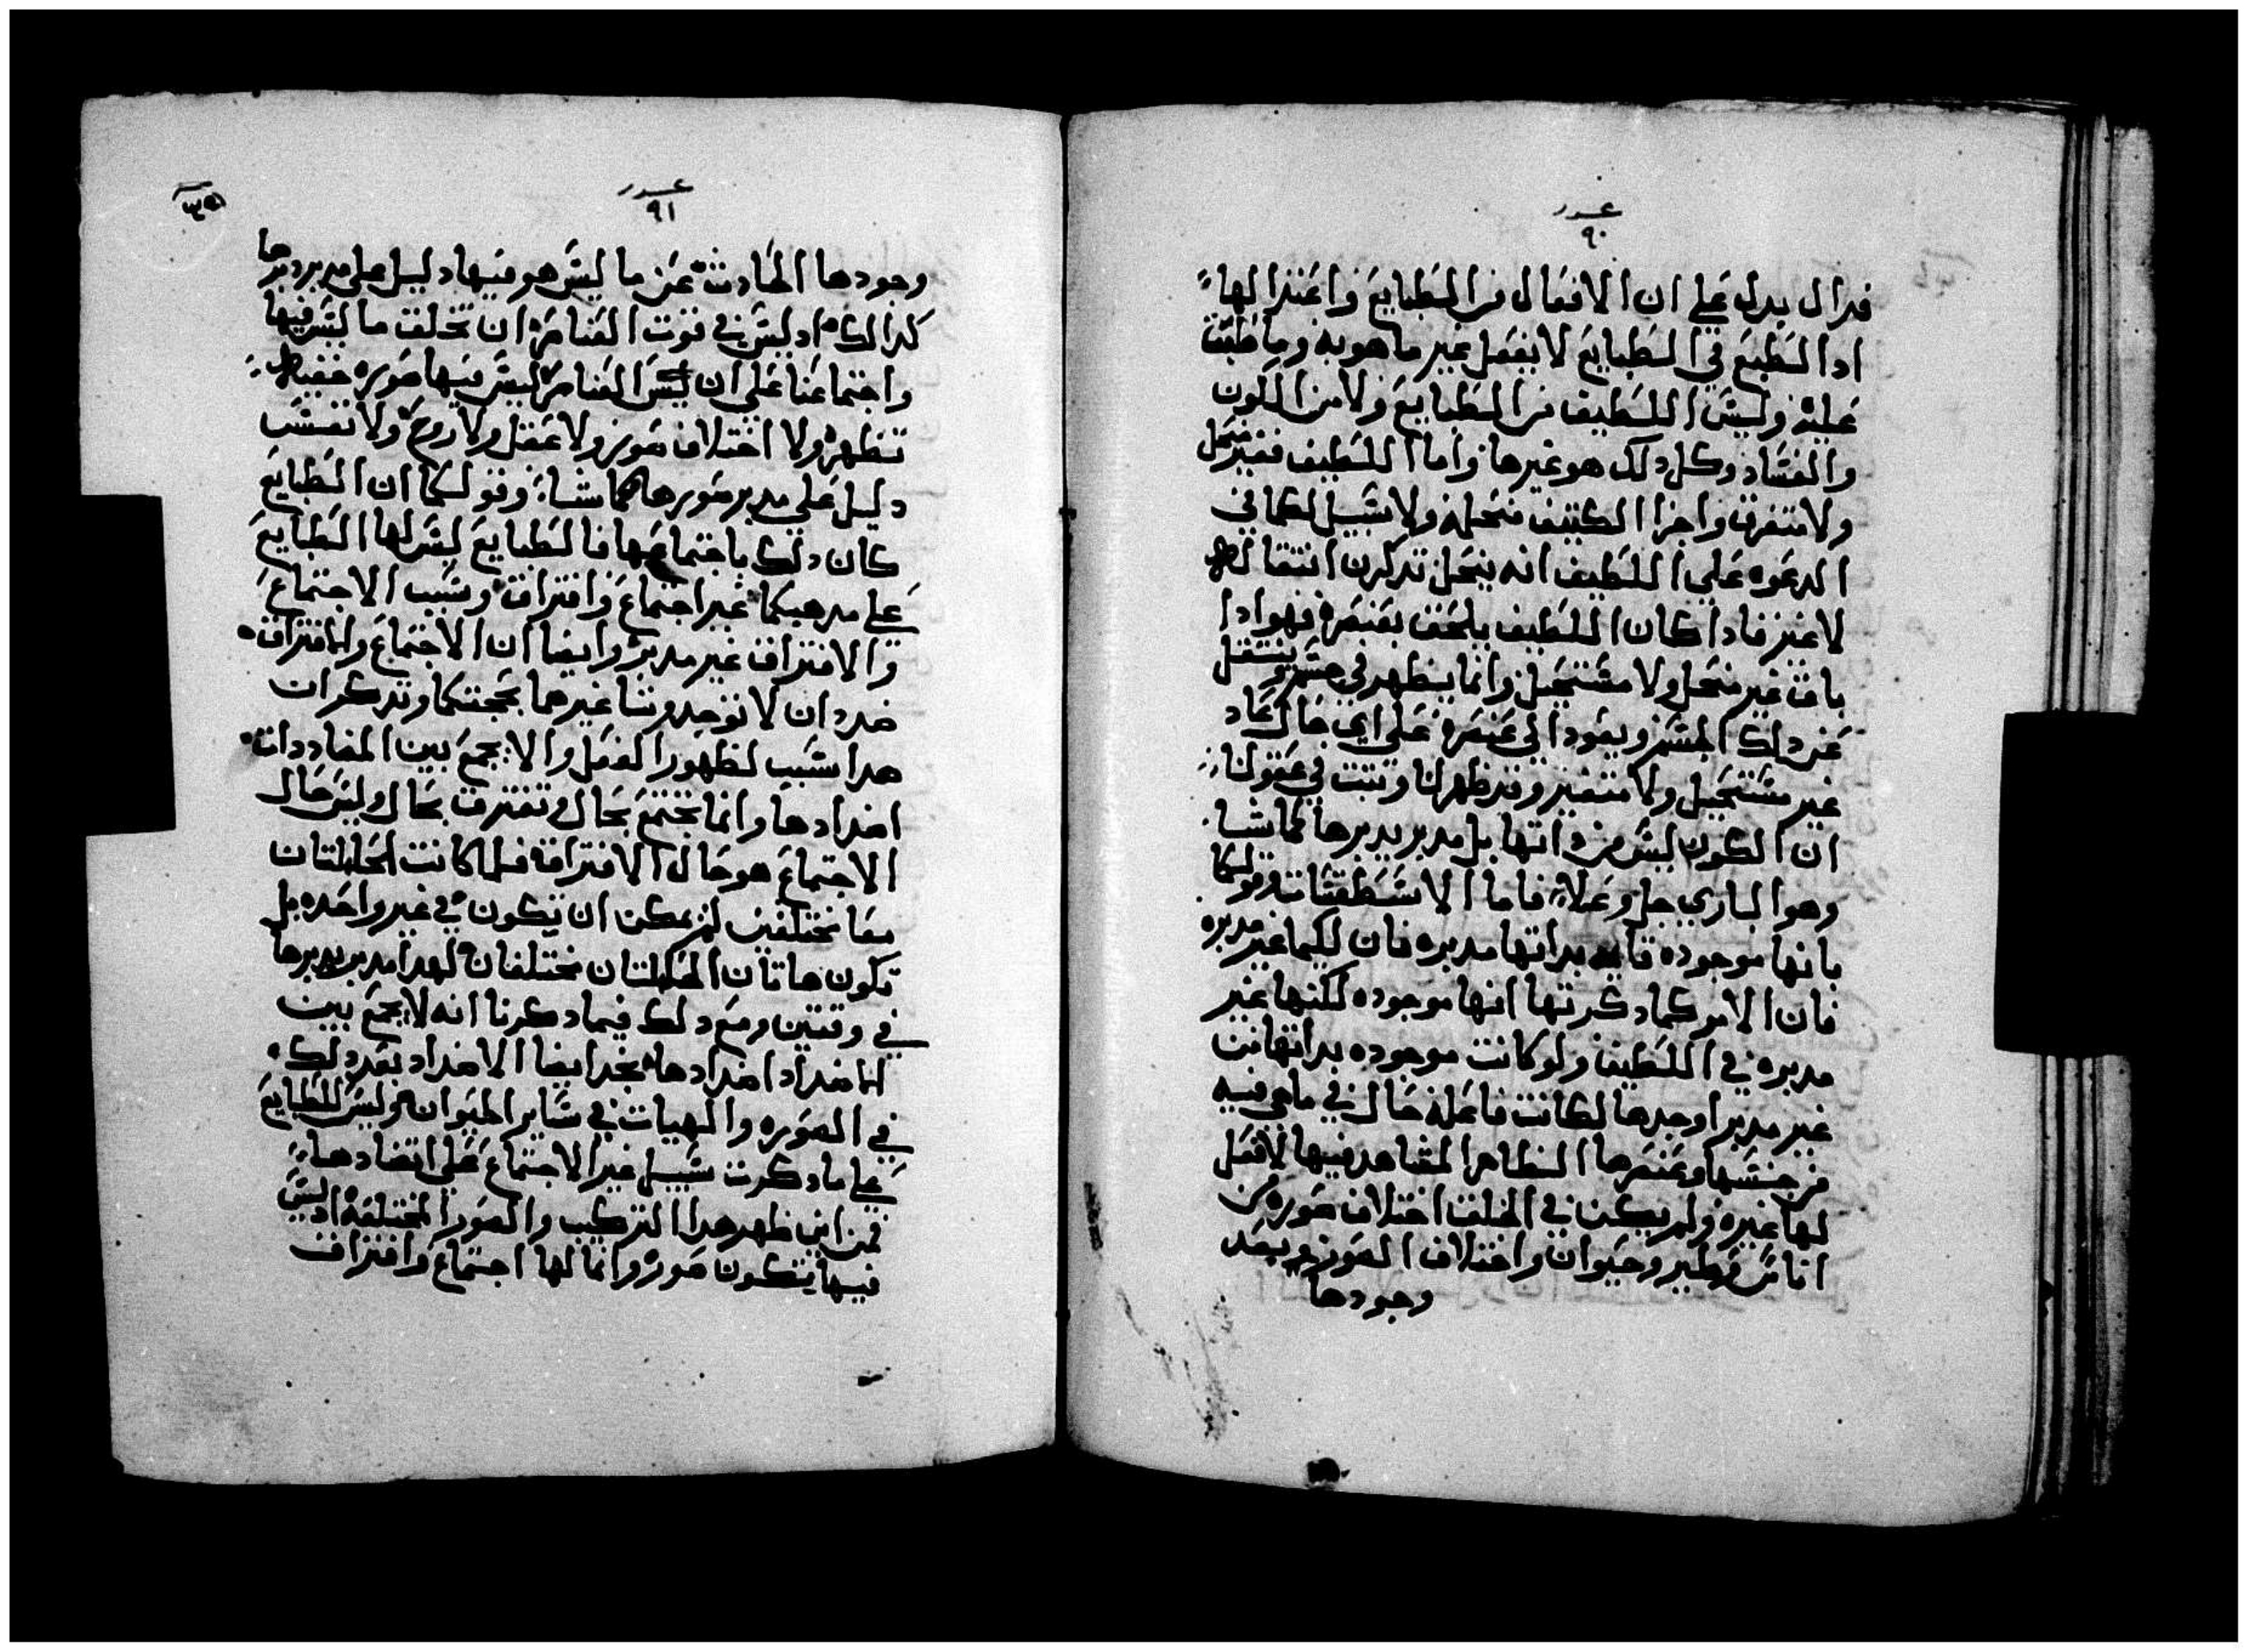 عدد
٩٠
فدال يدل علي ان الافعال من الطبايع واعتدالها
ادا الطبع في الطبايع لا يفعل غير ما هو به وما طبع
عليه وليس اللطيف من الطبايع ولا من الكون
والفساد وكل دلك هو غيرها واما اللطيف فغير منحل
ولا متفرق واجزا الكثيف منحله ولا سبيل لكما في
الدعوه علي اللطيف انه ينحل تدكرن انتقاله
لا غير فادا كان اللطيف يلحق بعنصره فهو ادا
باق غير منحل ولا مستحيل وانما يظهر في جسم وينتقل
عن دلك الجسم ويعود الي عنصره علي اي حال عاد
غير مستحيل ولا متغير وقد ظهر لنا وتبت في عقولنا
ان الكون ليس من داتها بل مدبر يدبرها كما شا
وهو الباري جل وعلا فاما الاسطقسات وقولكما
بانها موجوده قايمه بداتها مدبره فان ليكما غير مدبره
فان الامر كما دكرتها انها موجوده لكنها غير
مدبره في اللطيف ولو كانت موجوده بداتها من
غير مدبر اوجدها لكانت فاعله حال في ما هي فيه
من جنسها وعنصرها الظاهر المشاهد فيها لا فعل
لها غيره ولم يكن في الخلق اختلاف صوره من
اناس وطير وحيوان واختلاف الصور وبعد
وجودها
عدد
٩١
وجودها الحادث عن ما ليس هو فيها دليل علي مدبر دبرها
كدالك ادليس في قوت العناصر ان تخلق ما ليس فيها
واجتماعنا علي ان ليس العناصر ليس فيها صوره خفيه
تظهر ولا اختلاف صور ولا عقل ولا روح ولا نفس
دليل علي مدبر صورها كما شا وقولكما ان الطبايع
كان دلك باجتماعها فالطبايع ليس لها الطبايع
علي مدهبكما غير اجتماع وافتراق وسبب الاجتماع
والافتراق غير مدبر وايضا ان الاجتماع والافتراق
ضدد ان لا نوجد وتنا غيرهما بحجتكما وتدكران
هدا سبب لظهور الفعل والا يجمع بين المضاددات
اضدادها وانما تجتمع بحال وتفترق بحال وليس حال
الاجتماع هو حال الافتراق فلما كانت الحالتان
معا مختلفين لم يمكن ان تكون في غير واحده بل
تكون هاتان الحالتان مختلفان لهدا مدبر يدبرها
في وقتين ومع دلك فيما دكرنا انه لا يجمع بين
الاضداد اضدادها نجد ايضا الاضداد بعد دلك
في الصوره والهيات في ساير الحيوان وليس للطبايع
علي ما دكرت سبيل غير الاجتماع علي اتضادها
فمن اين ظهر هدا التركيب والصور المختلفه ادليس
فيها يتكون صور وانما لها اجتماع وافتراق